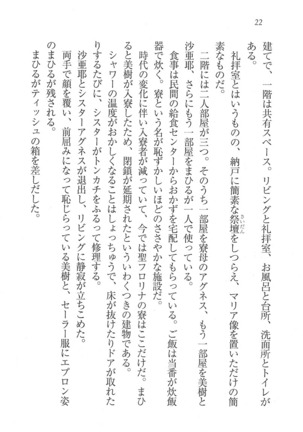 22
建てで、一階は共有スペース。リビングと礼拝室、お風呂と台所、洗面所とトイレが
ある。
礼拝室とはいうものの、納戸に簡素な祭壇をしつらえ、マリア像を置いただけの簡
さいだん
二階には二人部屋が三つ。そのうち一部屋を寮母のアグネス、もう一部屋を美樹と
沙亜耶、さらにもう一部屋をまひるが一人で使っている。ご飯は当番が炊飯
食事は民間の給食センターからおかずを宅配してもらっている。
器で炊く。寮という名が恥ずかしいほどのささやかな施設だ。
時代の変化に伴い入寮者が減っていて、今では聖フロリナの寮はここだけだ。まひ
ると美樹が入寮したため、閉鎖が延期されたといういわくつきの建物である。
シャワーの温度がおかしくなることはしょっちゅうで、床が抜けたりドアが取れた
りするたびに、シスターがトンカチをふるって修理する。
沙亜耶とシスターアグネスが退出し、リビングに静寂が立ちこめた。
両手で顔を覆い、前屈みになって恥じらっている美樹と、セーラー服にエプロン姿
のまひるが残される。
まひるがティッシュの箱を差しだした。